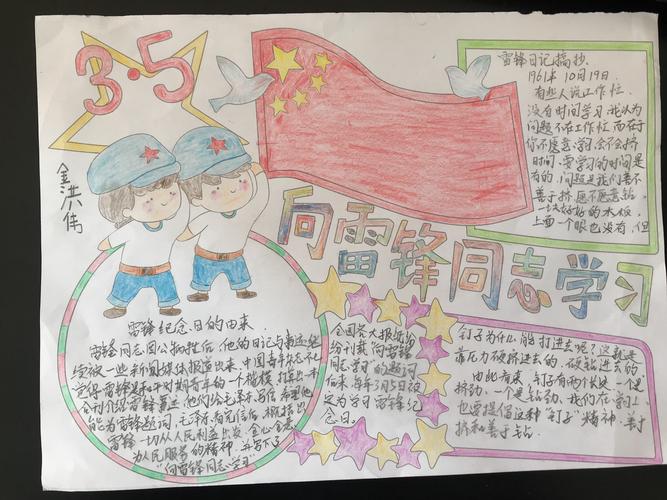 3·5
金洪伟
向雷锋同志学习
雷锋日记摘抄.
1961年10月19日.
有些人说工作忙.
没有时间学习.我认为
问题不在工作忙,而在于
你不愿意学习,会不会挤
时间,要学习的时间是
有的,问题是我们善不
善于挤,愿不愿意钻.
一块好好的木板,
上面一个眼也没有,但
钉子为什么能打进去呢?这就是
靠压力硬挤进去的,硬钻进去的.
由此看来,钉子有两个长处:一个是
挤劲,一个是钻劲,我们在学习上,
也要提倡这种"钉子"精神,善于
挤和善于钻.
雷锋纪念日的由来.
雷锋同志因公牺牲后,他的日记与
被一些新闻媒体报道出来,中国青年
觉得雷锋是和平时期青年的一个楷模,
介绍雷锋事迹,他们给毛泽东写信,希望他
能为雷锋题词,毛泽东看完信后,
雷锋一切从人民利益出发,全心全意
为人民服务的精神,并写下了
"向雷锋同志学习"
全国各大报纸
纷刊载"向雷锋
同志学习"的题词
后来,每年3月5日被
定为学习雷锋纪
念日.